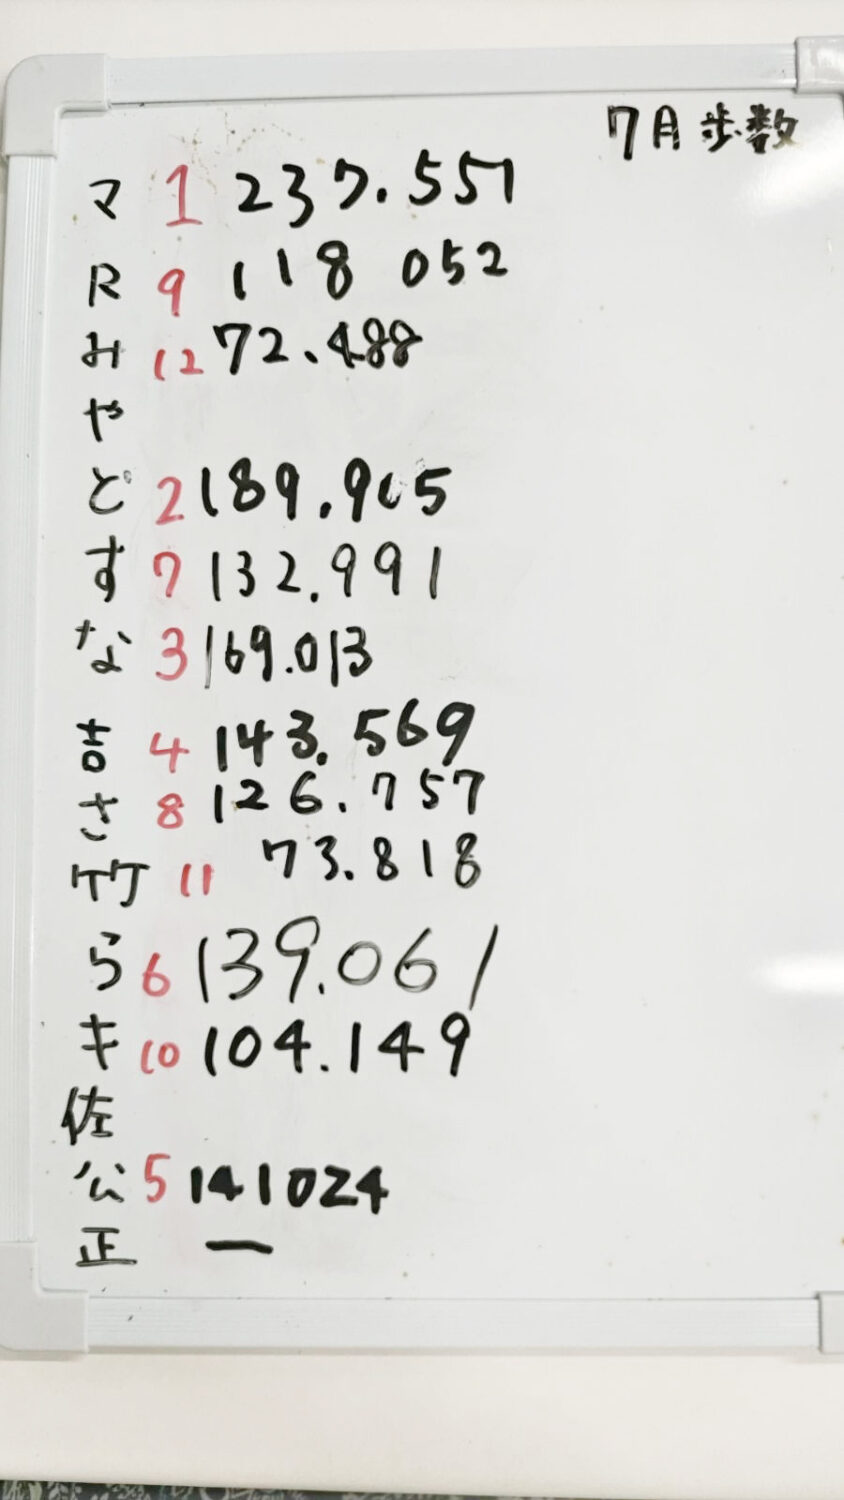 7月歩数
マ 1 237.551
R 9 118 052
み 12 72.488
や
ど 2 189.905
す 7 132.991
な 3 169.013
吉 4 143.569
さ 8 126.757
竹 11 73.818
ら 6 139.061
キ 10 104.149
佐
公 5 141024
正 ー